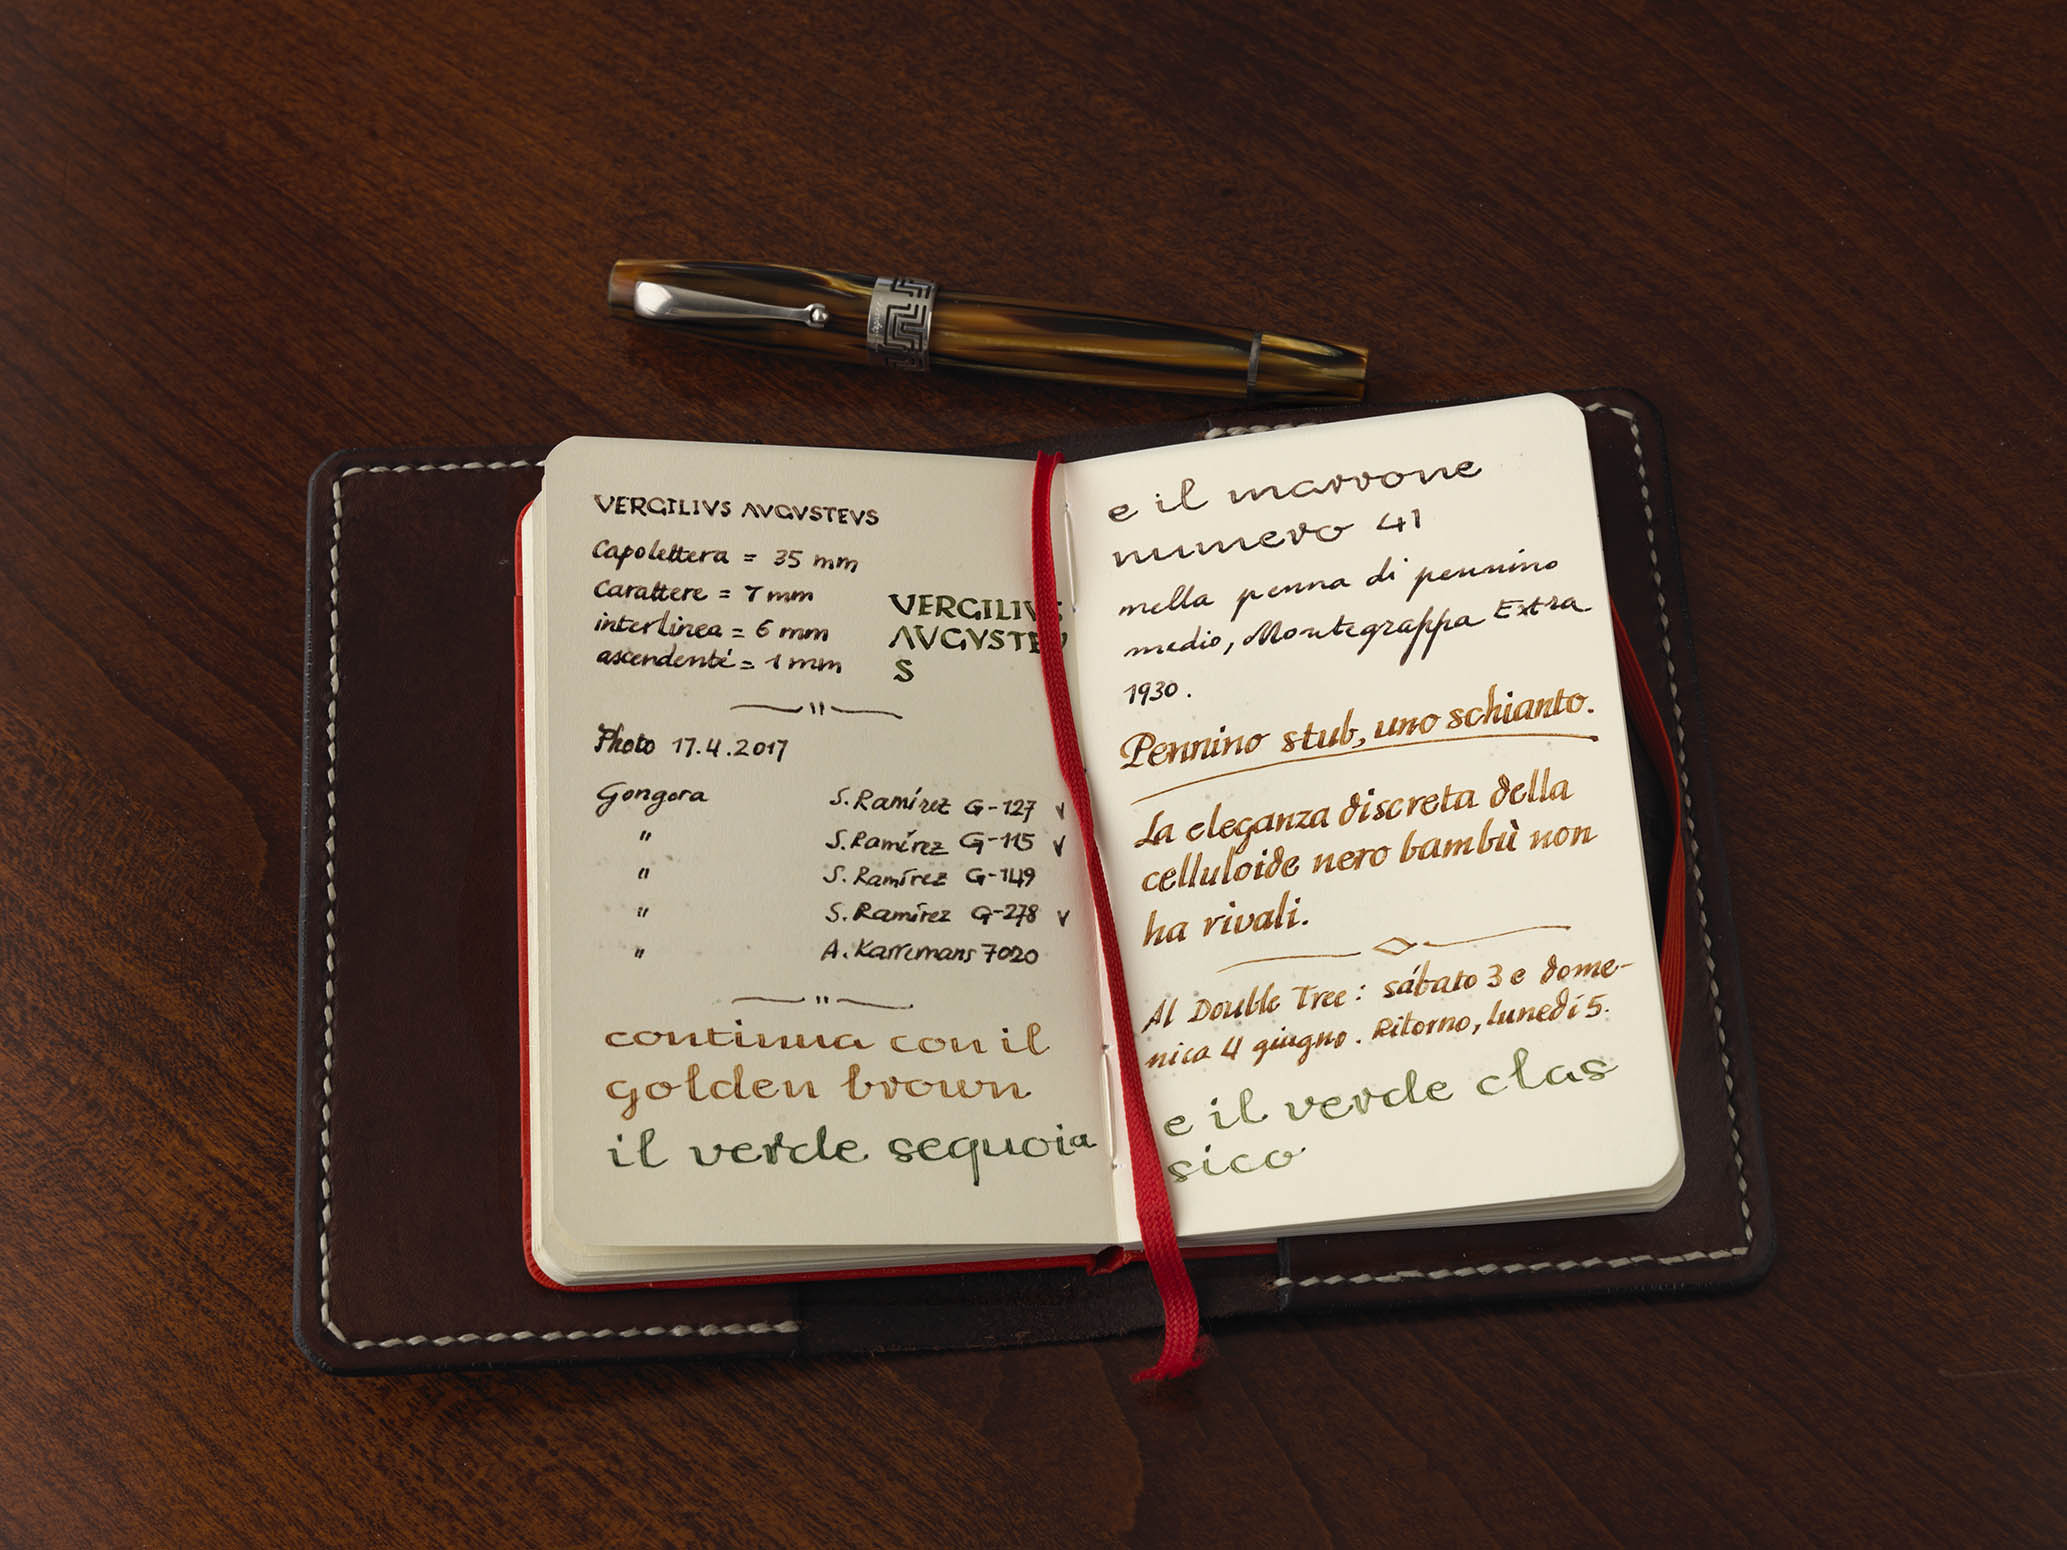 VERGILIVS AVGVSTEVS
Capolettera = 35 mm
Carattere = 7 mm
interlinea = 6 mm
ascendenté = 1 mm
VERGILIVS
AVGVSTEV
S
Photo 17.4.2017
Gongora S. Ramírez G-127 v
" S. Ramírez G-115 v
" S. Ramírez G-149
" S. Ramírez G-278 v
" A. Karremans 7020
continua con il
golden brown
il verde sequoia
e il marrone
numero 41
nella penna di pennino
medio, Montegrappa Extra
1930.
Pennino stub, uno schianto.
La eleganza discreta della
celluloide nero bambù non
ha rivali.
Al Double Tree: sábato 3 e dome-
nica 4 giugno. Ritorno, lunedí 5.
e il verde clas
sico